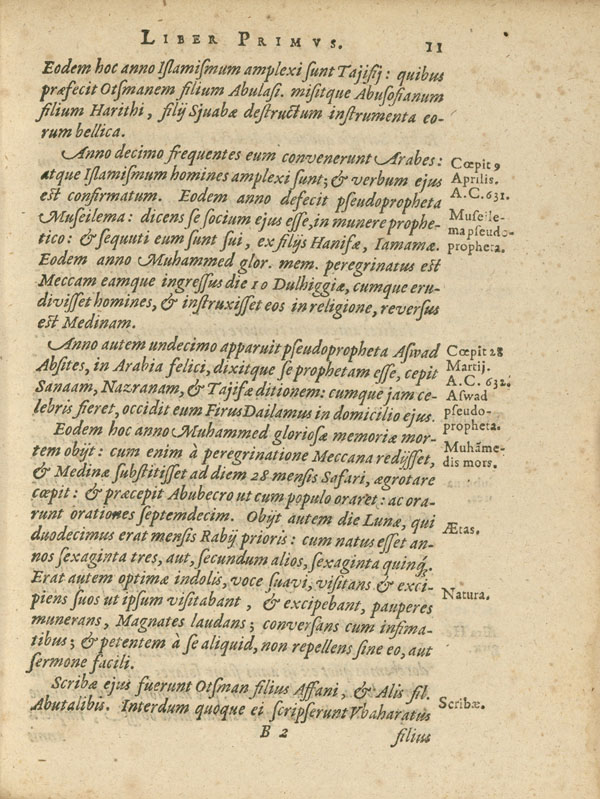 LIBER PRIMVS. 11
Eodem hoc anno Islamismum amplexi sunt Tajifij: quibus
præfecit Otsmanem filium Abulasi. misitque Abusofianum
filium Harithi, filij Sjuabæ destructum instrumenta eo-
rum bellica.
Anno decimo frequentes eum convenerunt Arabes:
atque Islamismum homines amplexi sunt; & verbum ejus
est confirmatum. Eodem anno defecit pseudopropheta
Museilema: dicens se socium ejus esse, in munere prophe-
tico: & sequuti eum sunt sui, ex filijs Hanifæ, Iamamæ.
Eodem anno Muhammed glor. mem. peregrinatus est
Meccam eamque ingressus die 10 Dulhiggiæ, cumque eru-
divisset homines, & instruxisset eos in religione, reversus
est Medinam.
Cœpit 9
Aprilis.
A.C. 631.
Museile-
ma pseudo-
propheta.
Anno autem undecimo apparuit pseudopropheta Aswad
Absites, in Arabia felici, dixitque se prophetam esse, cepit
Sanaam, Nazranam, & Tajifæ ditionem: cumque jam ce-
lebris fieret, occidit eum Firus Dailamus in domicilio ejus.
Cœpit 28
Martij.
A.C. 632.
Aswad
pseudo-
propheta.
Eodem hoc anno Muhammed gloriosæ memoriæ mor-
tem obijt: cum enim à peregrinatione Meccana redijsset,
& Medinæ substitisset ad diem 28 mensis Safari, ægrotare
cœpit: & præcepit Abubecro ut cum populo oraret: ac ora-
runt orationes septemdecim. Obijt autem die Lunæ, qui
duodecimus erat mensis Rabij prioris: cum natus esset an-
nos sexaginta tres, aut, secundum alios, sexaginta quinq.
Erat autem optimæ indolis, voce suavi, visitans & exci-
piens suos ut ipsum visitabant, & excipebant, pauperes
munerans, Magnates laudans; conversans cum infima-
tibus; & petentem à se aliquid, non repellens sine eo, aut
sermone facili.
Muhãme-
dis mors.
Ætas.
Natura.
Scribæ ejus fuerunt Otsman filius Affani, & Alis fil.
Abutalibis. Interdum quoque ei scripserunt Vbaharatus
Scribæ.
B 2 filius